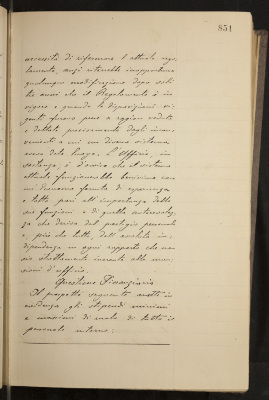 851
necessità di riformare l'attuale rego-
lamento, anzi riterrebbe inopportuna
qualunque modificazione dopo sol-
tanto anni che il Regolamento è in
vigore e quando le disposizioni vi-
genti furono poste a ragion veduta
e dettate precisamente dagli incon-
venienti a cui un diverso sistema
aveva dato luogo. L'Ufficio in
sostanza è d'avviso che il sistema
attuale funzionerebbe benissimo con
un Economo fornito di esperienza
e tatto pari all'importanza delle
sue funzioni e di quella autorevolez-
za che deriva dal prestigio personale
e più che tutto, dall'assoluta in-
dipendenza in ogni rapporto che non
sia strettamente inerente alle man-
sioni d'ufficio.
Questione Finanziaria
Il prospetto seguente mette in
evidenza gli stipendi minimi
e massimi di ruolo di tutto il
personale interno: